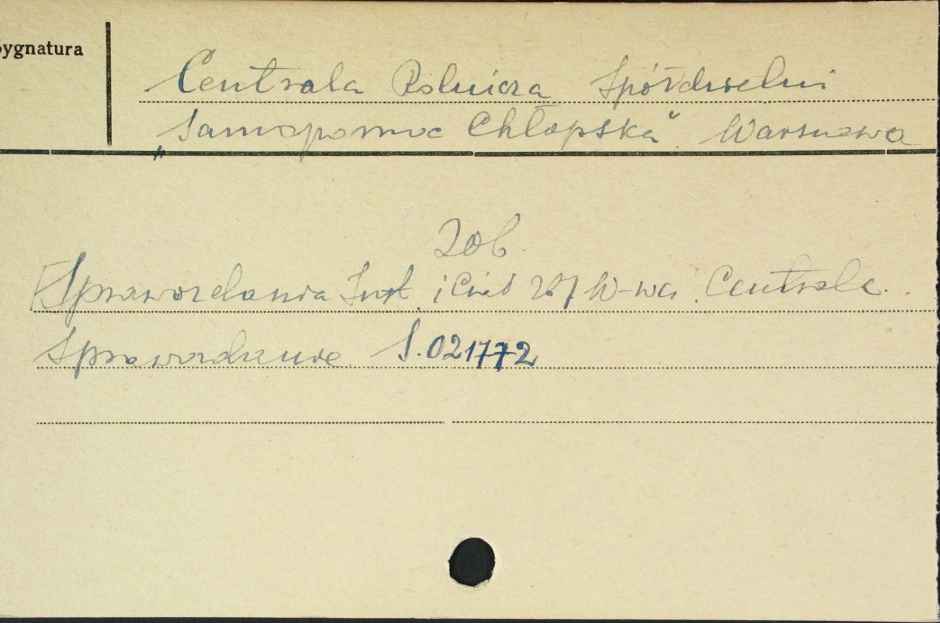 ygnatura
Centrala Rolnicza Spółdzielni
„Samopomoc Chłopska” Warszawa
Zob.
Sprawozdania Inst. i 267 W-wa. Centrala.
Sprawozdanie S.021772